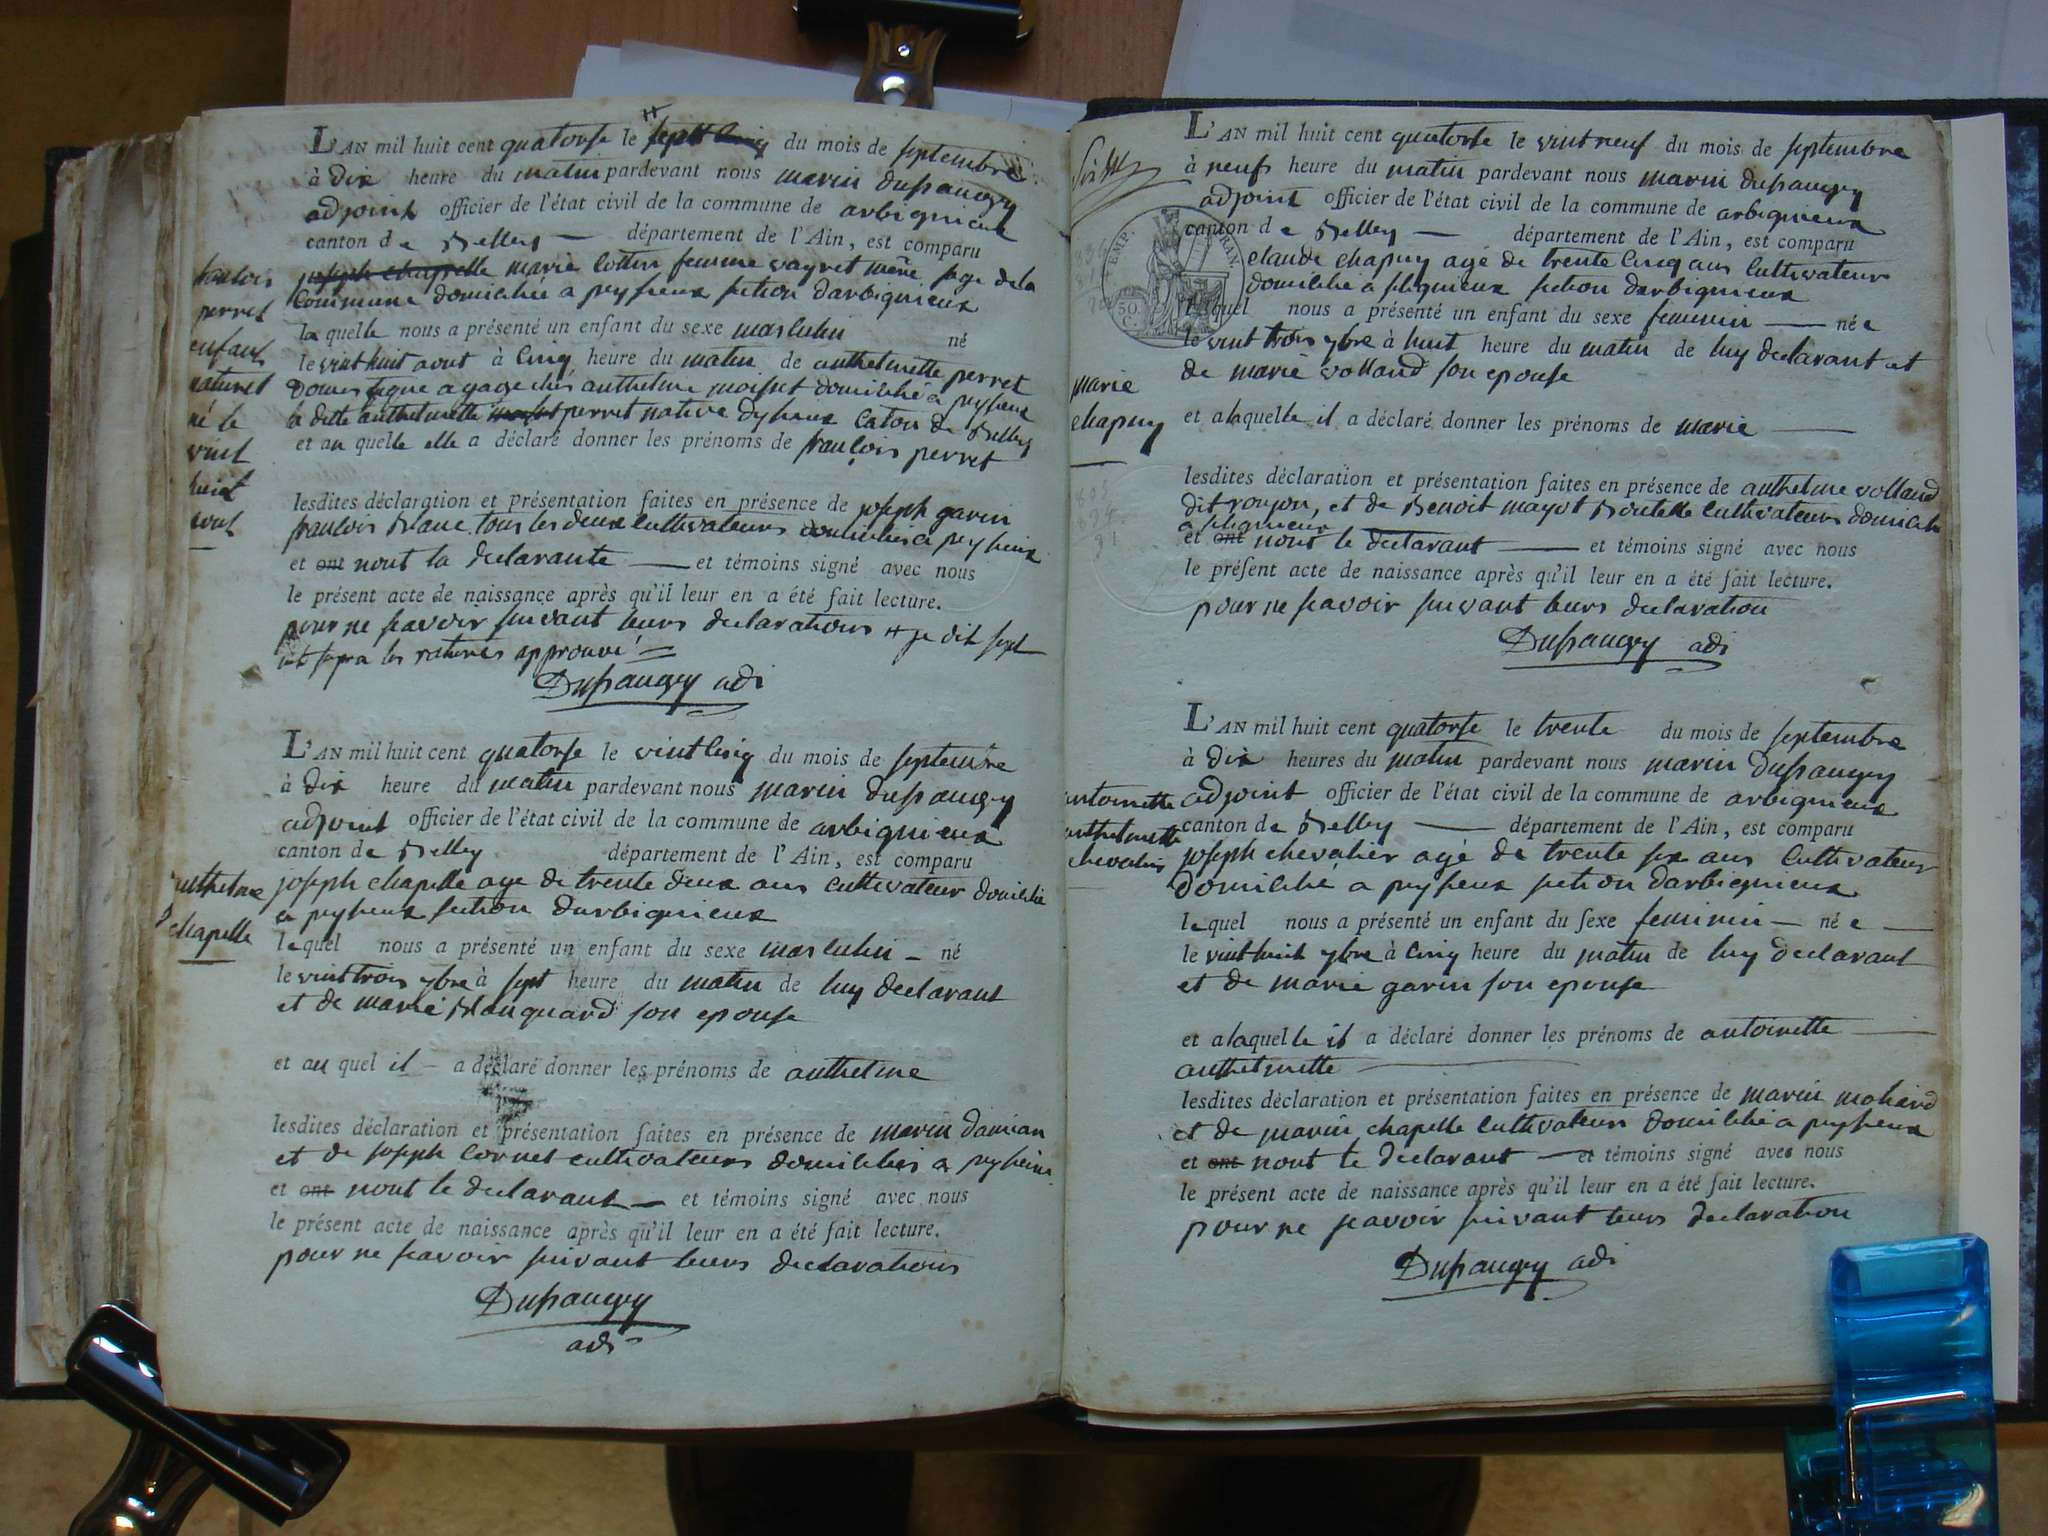 L'AN mil huit cent quatorse le sept cinq du mois de septembre
à dix heure du matin pardevant nous marin dupraugey
adjoint officier de l'état civil de la commune de arbignieux
canton de Belley — département de l'Ain, est comparu
joseph chapelle marie cottin femme vayret mère sage de la
commune domicilié a peyzieux section darbignieux
la quelle nous a présenté un enfant du sexe masculin né
le vint huit aout à cinq heure du matin de anthelmette perret
domestique a gage chés anthelme moisset domicilié à peyzieux
la ditte anthelmette perret native dyzieux caton de Belley
et au quelle elle a déclaré donner les prénoms de françois perret
françois
perret
enfant
naturel
né le
vint
huit
aout
lesdites déclaration et présentation faites en présence de joseph garin
françois Blanc tous les deux cultivateurs domiciliés a peyzieux
et ont nont la declarante — et témoins signé avec nous
le présent acte de naissance après qu'il leur en a été fait lecture.
pour ne scavoir suivant leurs declarations # je dit sept
les ratures approuvé
Dupraugey adj
L'AN mil huit cent quatorse le vint cinq du mois de septembre
à dix heure du matin pardevant nous marin dupraugey
adjoint officier de l'état civil de la commune de arbignieux
canton de Belley département de l'Ain, est comparu
anthelme
chapelle
joseph chapelle age de trente deux ans cultivateur domicilié
a peyzieux section darbignieux
le quel nous a présenté un enfant du sexe masculin — né
le vint trois 7bre à sept heure du matin de luy declarant
et de marie Blanquard son epouse
et au quel il — a déclaré donner les prénoms de anthelme
lesdites déclaration et présentation faites en présence de marin damian
et de joseph cornet cultivateurs domiciliés a peyzieux
et ont nont le declarant — et témoins signé avec nous
le présent acte de naissance après qu'il leur en a été fait lecture.
pour ne scavoir suivant leurs declarations
Dupraugey
adj
L'AN mil huit cent quatorse le vint neuf du mois de septembre
à neufs heure du matin pardevant nous marin dupraugey
adjoint officier de l'état civil de la commune de arbignieux
canton de Belley — département de l'Ain, est comparu
claude chapuy agé de trente cinq ans cultivateur
domicilié à slignieux section darbignieux
lequel nous a présenté un enfant du sexe feminin — née
le vint trois 7bre à huit heure du matin de luy declarant et
de marie volland son epouse
marie
chapuy
et alaquelle il a déclaré donner les prénoms de marie —
lesdites déclaration et présentation faites en présence de anthelme volland
dit royon, et de Benoit mayot cultivateurs domicilié
a slignieux
et ont nont le declarant — et témoins signé avec nous
le présent acte de naissance après qu'il leur en a été fait lecture.
pour ne scavoir suivant leurs declaration
Dupraugey adj
L'AN mil huit cent quatorse le trente du mois de septembre
à dix heures du matin pardevant nous marin dupraugey
adjoint officier de l'état civil de la commune de arbignieux
canton de Belley — département de l'Ain, est comparu
antoinette
anthelmette
chevalier
joseph chevalier agé de trente six ans cultivateur
domicilié a peyzieux section darbignieux
lequel nous a présenté un enfant du sexe feminin — née —
le vint huit 7bre à cinq heure du matin de luy declarant
et de marie garin son epouse
et alaquelle il a déclaré donner les prénoms de antoinette —
anthelmette —
lesdites déclaration et présentation faites en présence de marin moliard
et de marin chapelle cultivateurs domicilié a peyzieux
et ont nont le declarant — et témoins signé avec nous
le présent acte de naissance après qu'il leur en a été fait lecture.
pour ne scavoir suivant leurs declaration
Dupraugey adj